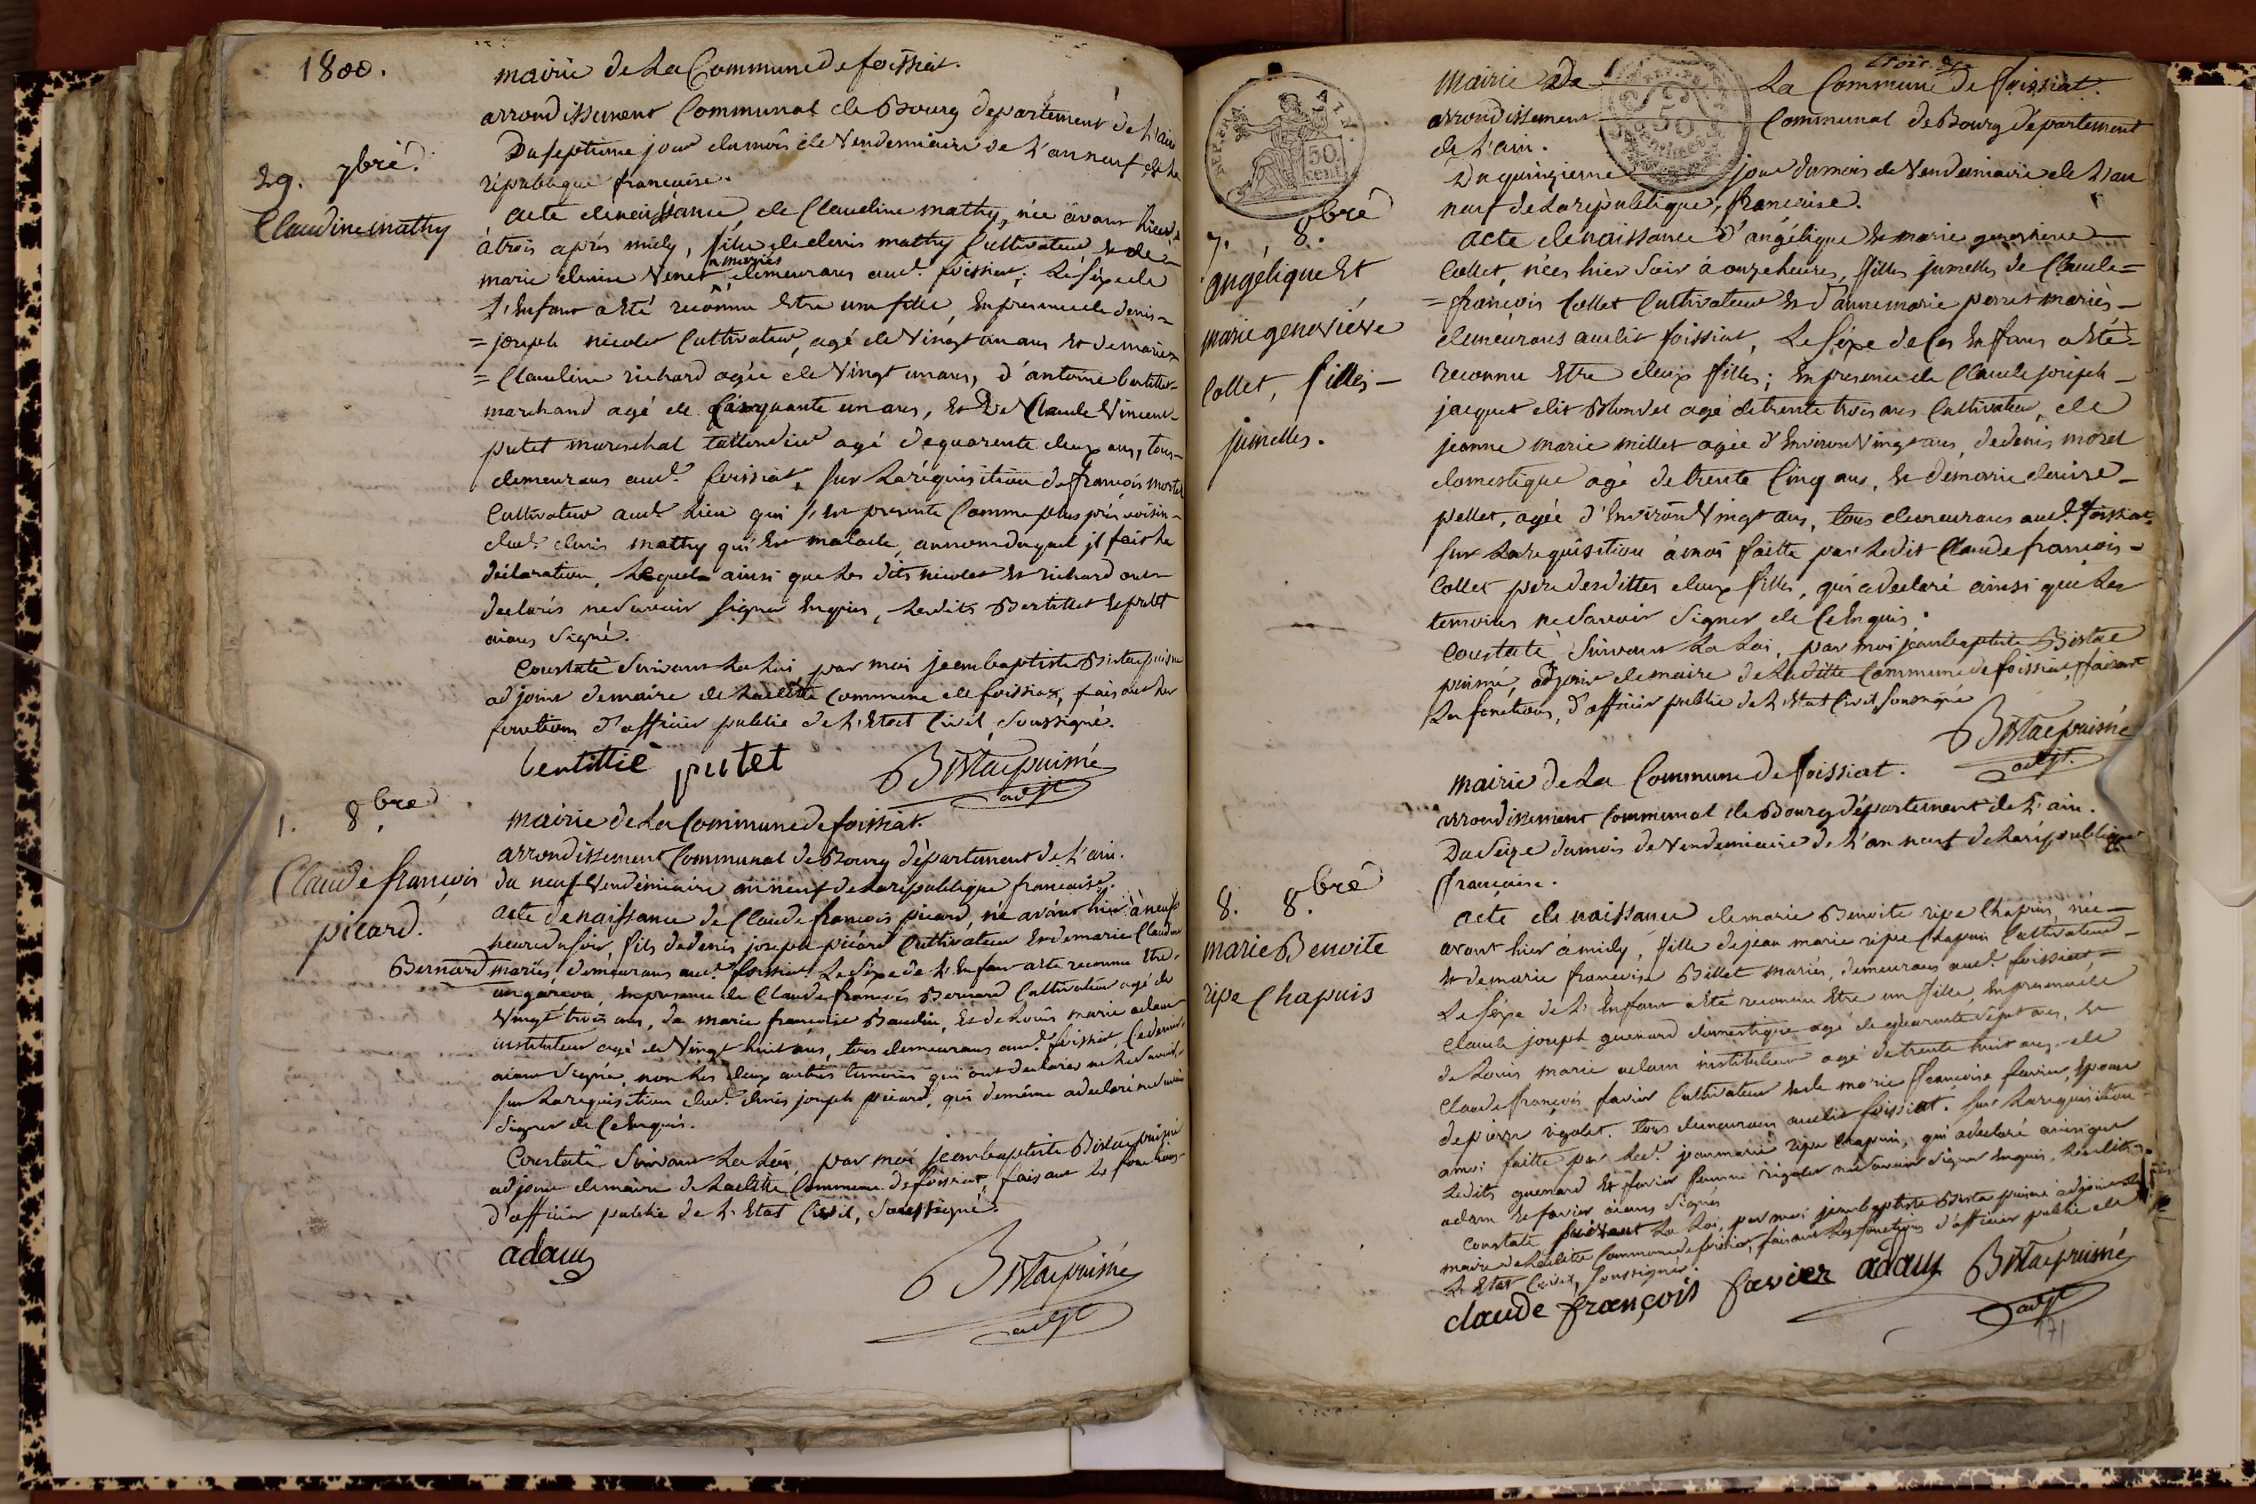 1800.
mairie de La Commune de foissiat.
arrondissement Communal de Bourg departement de L'ain
Du septieme jour du mois de Vendemiaire de L'an neuf de La
république francaise.
29. 7bre.
Claudine mathy
acte de naissance de Claudine mathy, née avant hier
à trois après midy, fille de denis mathy Cultivateur et de
marie Venet mariés, demeurans aud. foissiat; Le Sexe de
L'Enfant a Eté reconnu Etre une fille, En presence de denis
= joseph nicolet Cultivateur, agé de Vingt un ans Et de marie
= Claudine richard agée de Vingt un ans, d'antoine bertillet
marchand agé de Cinquante un ans, Et De Claude Vincent
putet mareschal taillandier agé de quarente deux ans, tous
demeurans aud. foissiat, sur La réquisition de françois
Cultivateur aud. Lieu qui s'est presenté Comme plus près voisin
dud. denis mathy qui Est malade, au nom duquel il fait La
déclaration, Lequel ainsi que Les dits nicolet et richard ont
declarés ne Savoir signer Enquis, Lesdits Bertillet et putet
aians signé.
Constaté Suivant La Loi par moi jean baptiste puisné
adjoint de maire de Laditte Commune de foissiat, faisant Les
fonctions d'officier public de L'Etat Civil, Soussigné.
putet
adjt
1. 8bre.
Claude françois
picard.
mairie de La Commune de foissiat.
arrondissement Communal de Bourg département de L'ain.
du neuf Vendémiaire an neuf de La republique francaise.
acte de naissance de Claude françois picard, né avant hier à neuf
heures du soir, fils de denis joseph picard Cultivateur Et de marie Claudine
Bernard mariés, demeurans aud. foissiat Le Sexe de L'Enfant a Eté reconnu Etre
un garcon, En presence de Claude françois Bernard Cultivateur agé de
Vingt trois ans, de marie françoise Baudin, Et de Louis marie adam
instituteur agé de Vingt huit ans, tous demeurans aud. foissiat, Ce dernier
aiant Signé, non Les deux autres temoins qui ont declarés ne Le Savoir,
sur La requisition dud. denis joseph picard, qui de même a declaré ne Savoir
signer de Ce Enquis.
Constaté Suivant La Loi par moi jean baptiste puisné
adjoint de maire de Laditte Commune de foissiat, faisant Les fonctions
d'officier public de L'Etat Civil, Soussigné.
adam
adjt
REP. FRA.
50
cent.
Mairie De La Commune de foissiat.
arrondissement Communal de Bourg département
de L'ain.
Du quinzieme jour du mois de Vendemiaire de L'an
neuf de La république, francaise.
7. 8.bre
angélique Et
marie genevieve
Collet, filles
jumelles.
acte de naissance d'angélique Et marie genevieve
Collet, nées hier Soir à onze heures, filles jumelles de Claude =
= françois Collet Cultivateur Et d'anne marie perret mariés
demeurans audit foissiat, Le Sexe de Ces Enfans a Eté
reconnu Etre deux filles; En presence de Claude joseph
jacquet dit Blondel agé de trente trois ans Cultivateur, de
jeanne marie millet agée d'Environ Vingt ans, de denis morel
domestique agé de trente Cinq ans, Et de marie claire
pellet, agée d'Environ Vingt ans, tous demeurans aud. foissiat
sur La requisition à moi faitte par Ledit Claude francois
Collet pere desdittes deux filles, qui a declaré ainsi que Les
temoins ne Savoir Signer de Ce Enquis.
Constaté Suivant La Loi, par moi jean baptiste
puisné, adjoint de maire de Laditte Commune de foissiat, faisant
Les fonctions, d'officier public de L'Etat Civil Soussigné
adjt.
mairie de La Commune de foissiat.
arrondissement Communal de Bourg département de L'ain.
Du Seize du mois de Vendemiaire de L'an neuf de La république
francaise.
8. 8.bre
marie Benoite
ripe Chapuis
acte de naissance de marie Benoite ripe Chapuis, née
avant hier à midy, fille de jean marie ripe Chapuis Cultivateur
Et de marie francoise Billet mariés, demeurans aud. foissiat
Le Sexe de L'Enfant a Eté reconnu Etre un fille, En presence de
Claude joseph guenard domestique agé de quarante sept ans, Et
de Louis marie adam instituteur agé de trente huit ans, de
Claude françois favier Cultivateur Et de marie françoise favier, Epouse
de pierre rigolet. tous demeurans audit foissiat. sur La requisition
à moi faitte par Led. jean marie ripe Chapuis, qui a declaré ainsi que
Ledits guenard Et favier femme rigolet ne Savoir Signer Enquis, Lesdits
adam Et favier aians signés
Constaté Suivant La Loi, par moi jean baptiste puisné adjoint de
maire de Laditte Commune de foissiat, faisant Les fonctions d'officier public de
L'Etat Civil, Soussigné.
claude françois favier adam
adjt
171